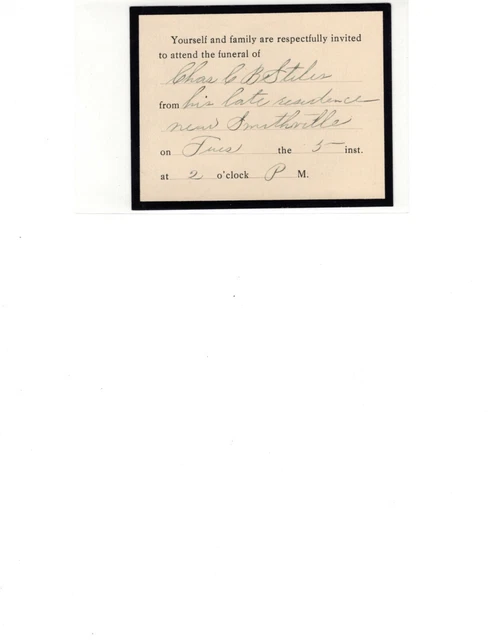 Yourself and family are respectfully invited
to attend the funeral of
Chas C B Stiles
from his late residence
near Smithville
on Tues the 5 inst.
at 2 o'clock P M.